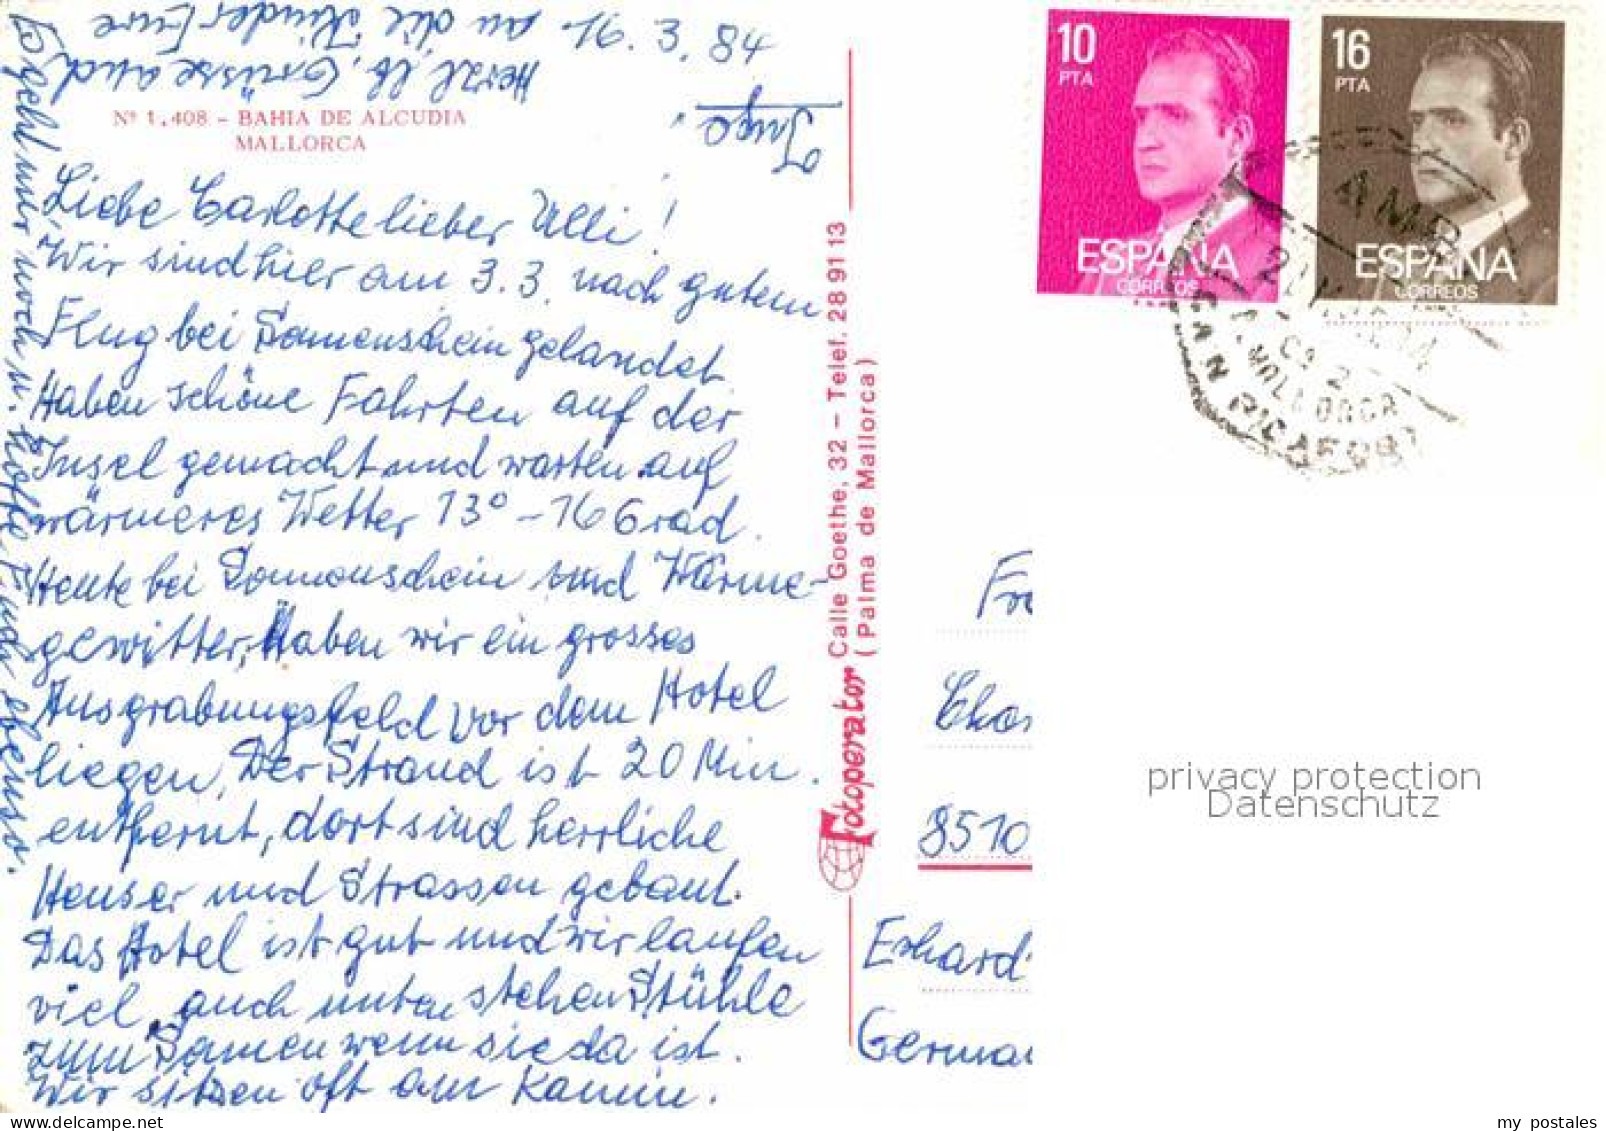 16. 3. 84
Nº 1.408 - BAHIA DE ALCUDIA
MALLORCA
Liebe Carlotte lieber Ulli!
Wir sind hier am 3.3. nach gutem
Flug bei Sonnenschein gelandet.
Haben schöne Fahrten auf der
Insel gemacht und warten auf
wärmeres Wetter 13° - 16 Grad.
Heute bei Sonnenschein und Wärme-
gewitter, Haben wir ein grosses
Ausgrabungsfeld vor dem Hotel
liegen, Der Strand ist 20 Min.
entfernt, dort sind herrliche
Heuser und Strassen gebaut.
Das Hotel ist gut und wir laufen
viel, auch unten stehen Stühle
zum Sonnen wenn sie da ist.
Wir sitzen oft am Kamin.
Es geht mir noch u. hoffe Euch ebenso.
Herzl. lb. Grüsse auch
an die Kinder Eure
Inge!
Fotoperator Calle Goethe, 32 - Telef. 28 91 13
(Palma de Mallorca)
10
PTA
ESPAÑA
CORREOS
16
PTA
ESPAÑA
CORREOS
MALLORCA
8510
German
privacy protection
Datenschutz
my postales